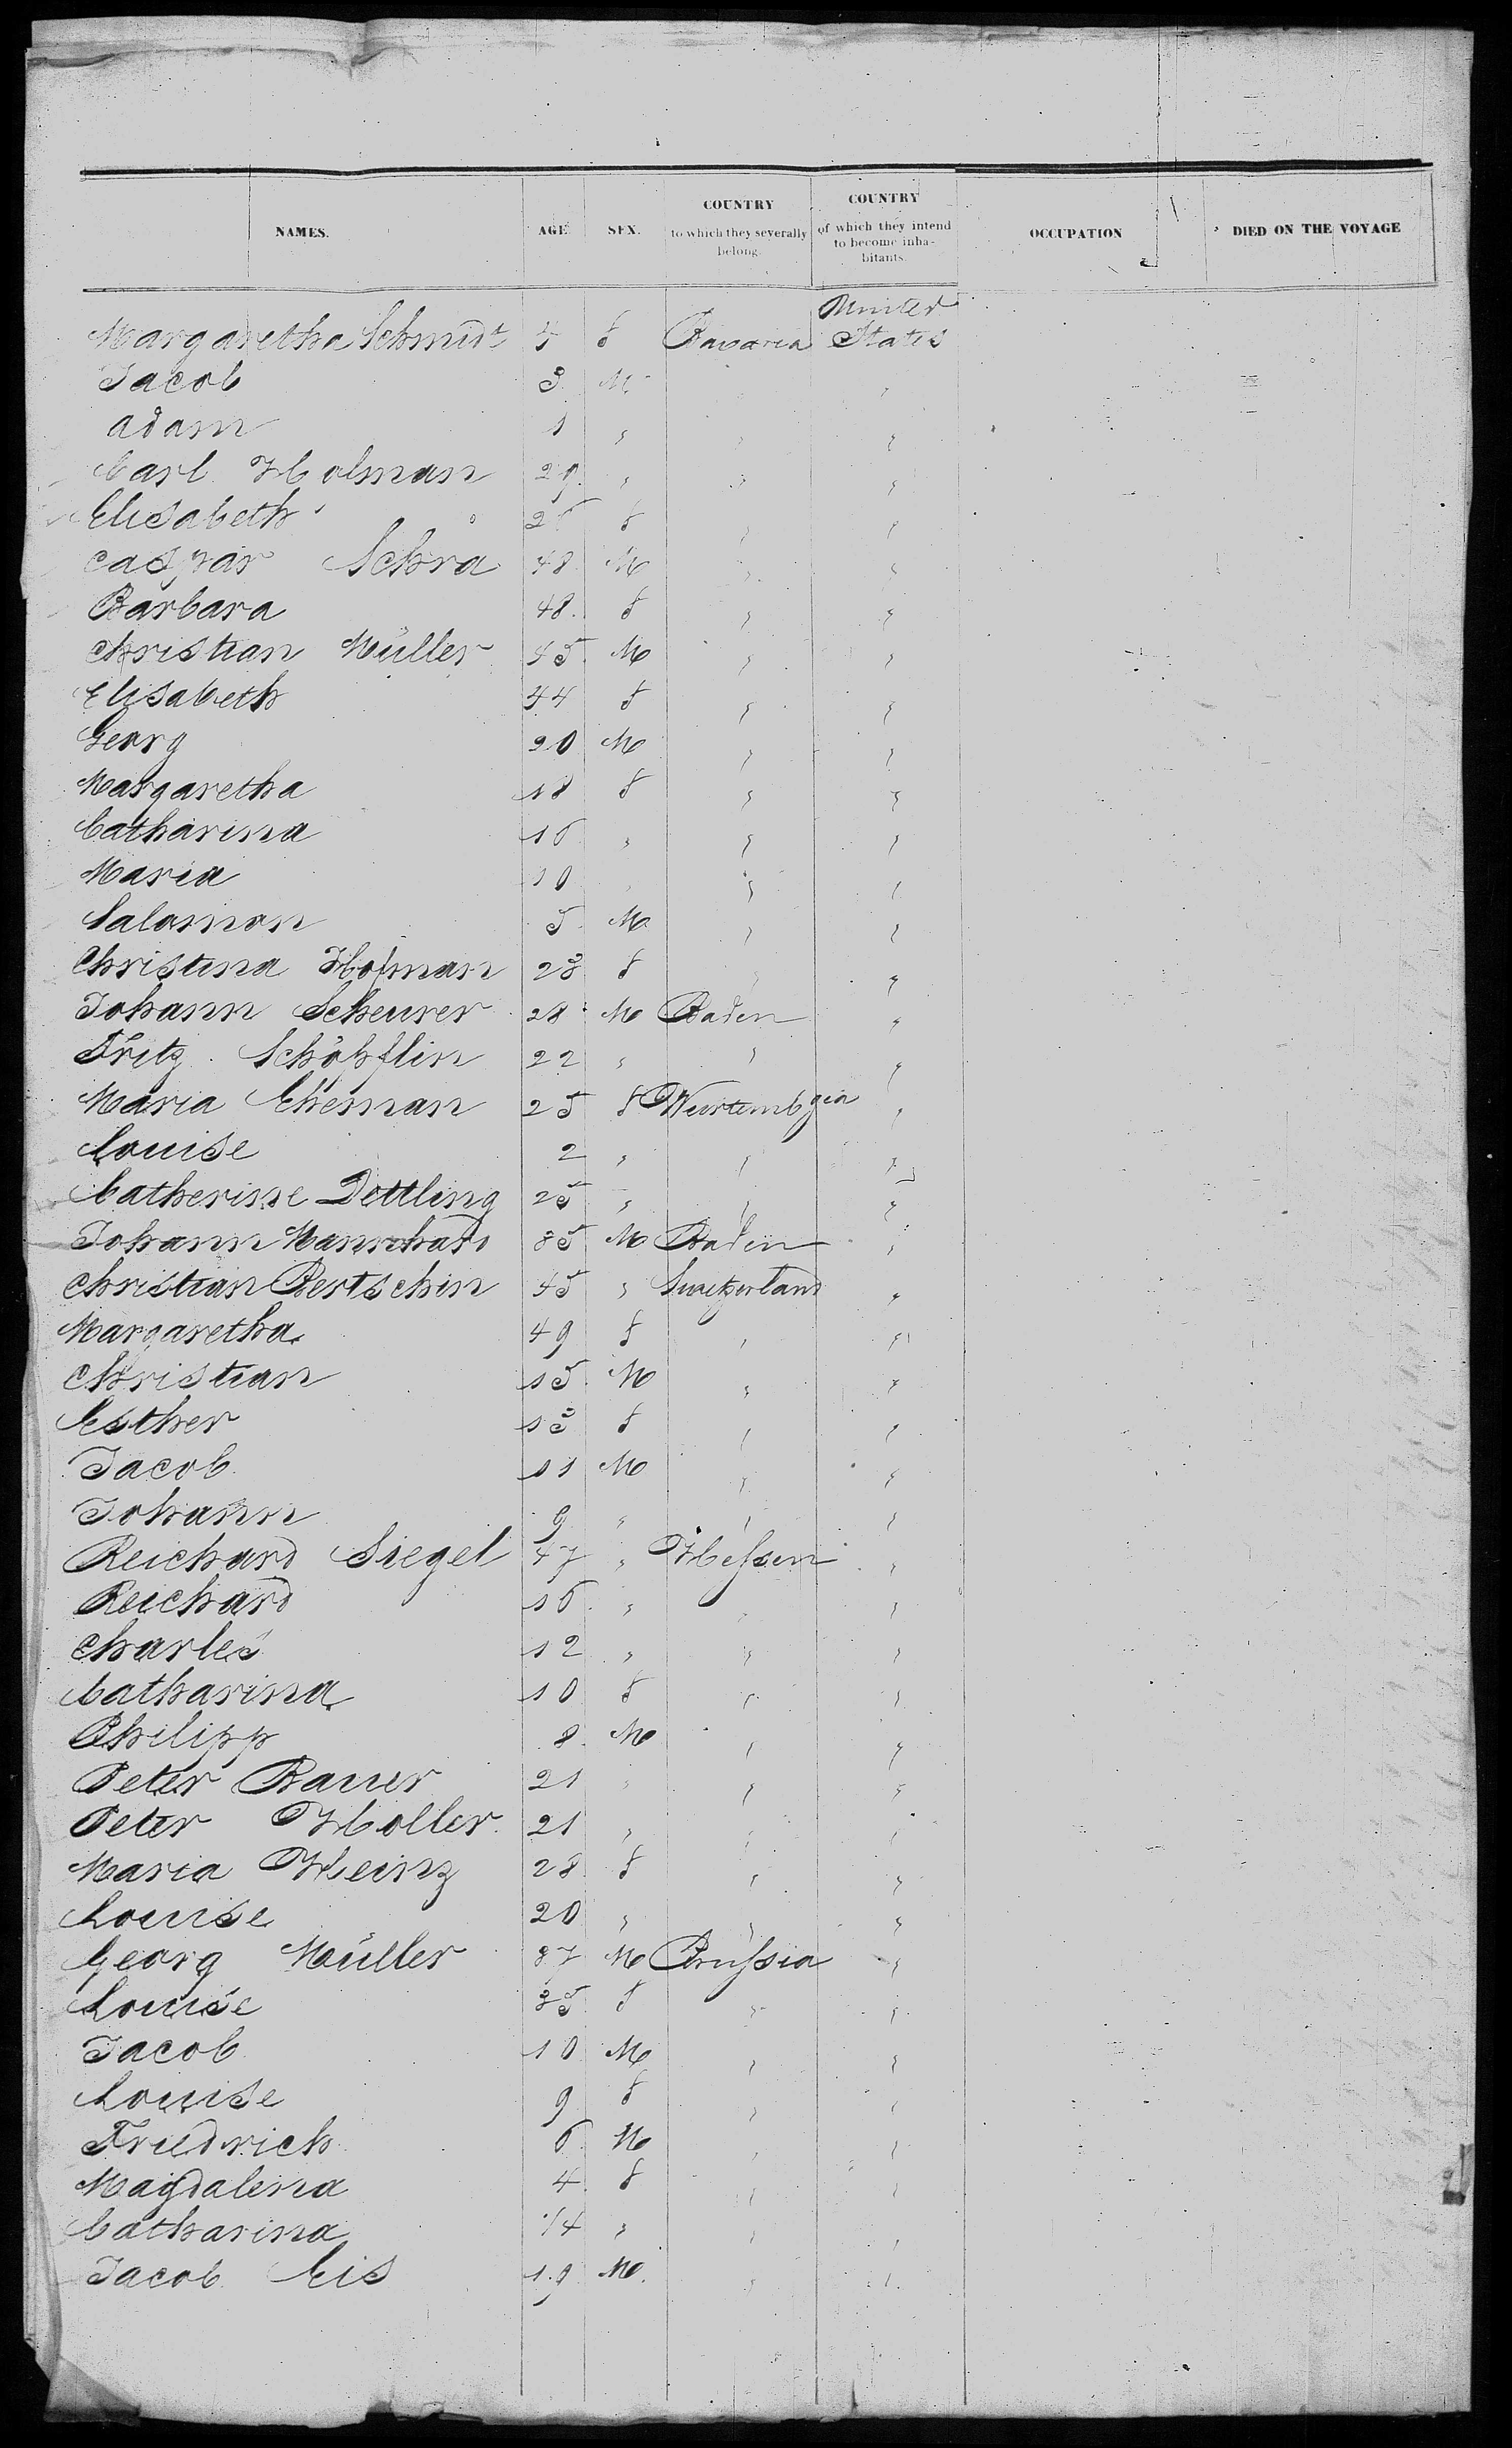 NAMES. AGE SEX. COUNTRY to which they severally belong. COUNTRY of which they intend to become inhabitants. OCCUPATION DIED ON THE VOYAGE
Margaretha Schmidt 4 f Bavaria United States
Jacob 3 M "
Adam 1 " " "
Carl Holman 29 " " "
Elisabeth 26 f " "
Caspar Schra 48 M " "
Barbara 48. f " "
Christian Müller 45. M " "
Elisabeth 44 f " "
Georg 20 M " "
Margaretha 18 f " "
Catharina 16 " " "
Maria 10 " " "
Salomon 5. M " "
Christina Hofman 23 f " "
Johann Scheurer 28 M Baden "
Fritz Schöpflin 22 " " "
Maria 25 f Wurtembgia "
Louise 2 " " "
Catherine Dettling 25 " " "
Johann Mannhard 35 M Baden "
Christian Bertschin 45 " Switzerland "
Margaretha 49 f " "
Christian 15. M " "
Esther 13 f " "
Jacob 11 M " "
Johann 9 " " "
Reichard Siegel 47 " Hessen "
Reichard 16. " " "
Charles 12 " " "
Catharina 10 f " "
Philipp 8. M " "
Peter Bauer 21 " " "
Peter Holler 21 " " "
Maria Heinz 28 f " "
Louise 20 " " "
Georg Müller 37 M Prussia "
Louise 35 f " "
Jacob 10 M " "
Louise 9 f " "
Friedrich 6 M " "
Magdalena 4. f " "
Catharina 1/4 " " "
Jacob Eis 19 M. " "